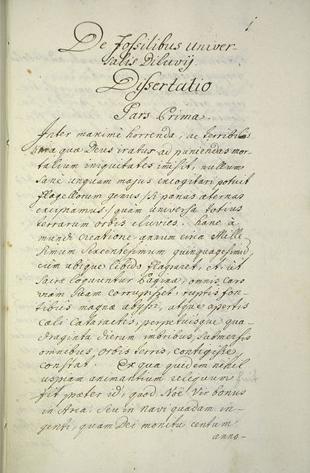 1
De Fossilibus univer-
salis Diluvij
Dissertatio
Pars Prima.
Inter maxime horrenda, ac terribilia
qua Deus iratus ad puniendas mor-
talium iniquitates immisit, nullum
sane unquam majus excogitari potuit
flagellorum genus, si pœnas æternas
excipiamus, quam universa totius
terrarum orbis eluvies. Hanc à
mundi creatione annum circa Mille-
simum sexcentesimum quinquagesimum,
cum ubique libido flagraret, et ut
sacræ loquuntur Paginæ, omnis caro
viam suam corrupisset, ruptis fon-
tibus magnæ abyssi, atque apertis
cæli cataractis, perpetuisque qua-
draginta dierum imbribus, submersis
omnibus, orbis terris, contigisse,
constat. Ex qua quidem nihil
uspiam animantium reliquum
fit præter id, quod Noë Vir bonus
in Arca, seu in navi quadam in-
genti, quam Dei monitu centum
anno-